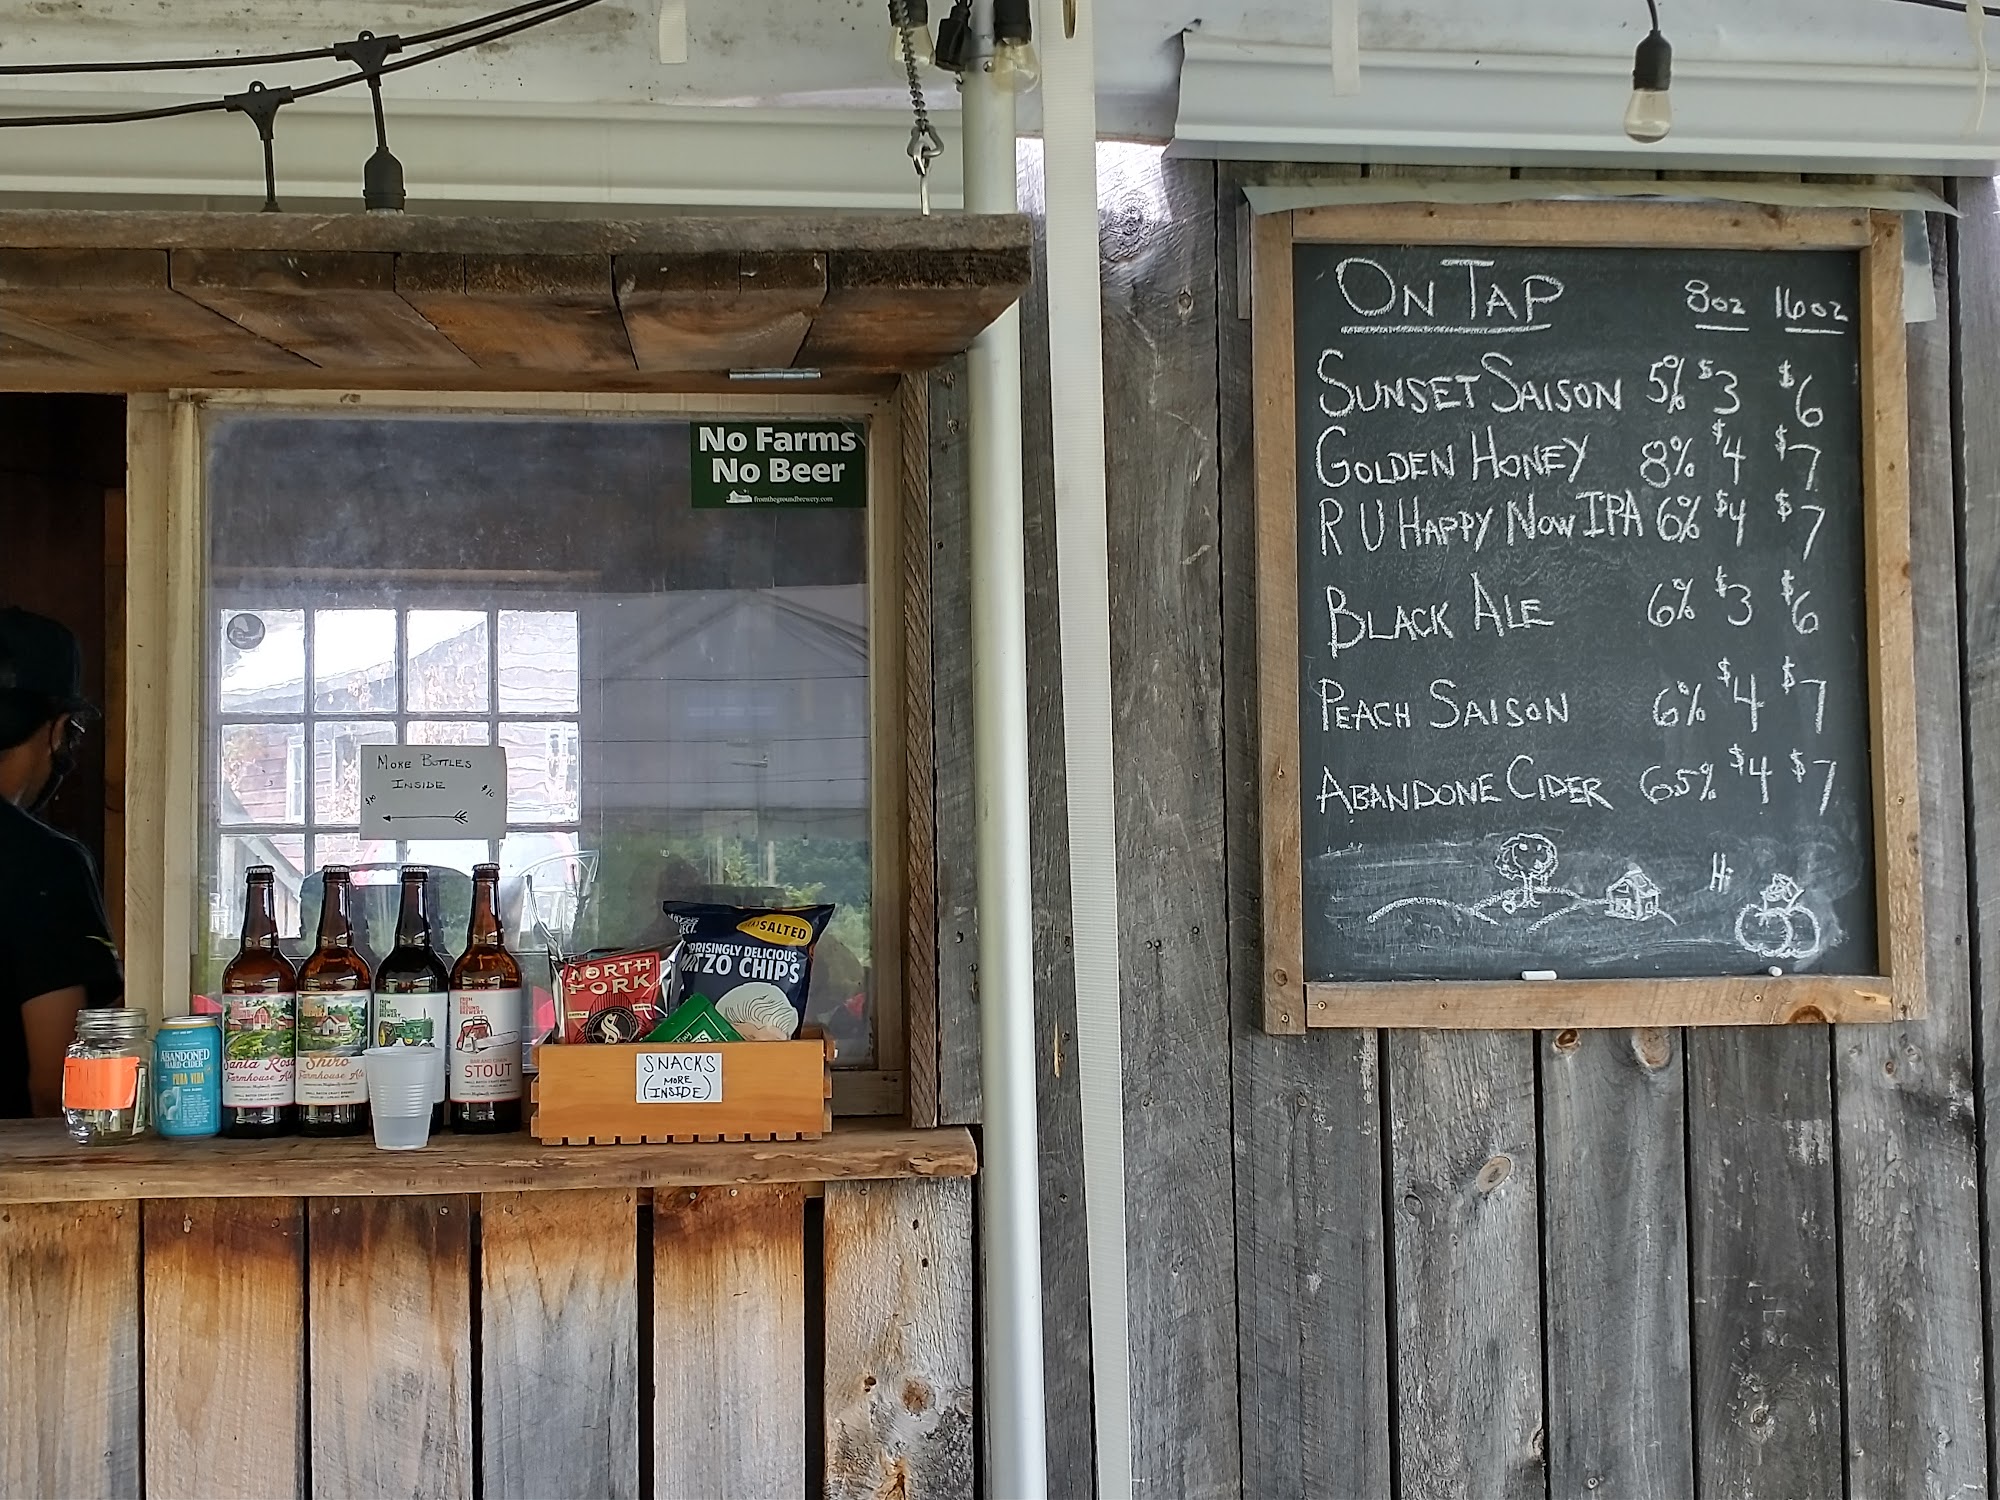 No Farms
No Beer
fromthegroundbrewery.com
MORE BOTTLES
INSIDE
$10 $10
ABANDONED
HARD CIDER
PURA VIDA
Santa Rosa
Farmhouse Ale
Shiro
Farmhouse Ale
FROM
THE
GROUND
BREWERY
FROM
THE
GROUND
BREWERY
BAR AND CHAIN
STOUT
NORTH
FORK
SALTED
PRISINGLY DELICIOUS
TZO CHIPS
SNACKS
(MORE
INSIDE)
ON TAP 8oz 16oz
SUNSET SAISON 5% $3 $6
GOLDEN HONEY 8% $4 $7
R U HAPPY NOW IPA 6% $4 $7
BLACK ALE 6% $3 $6
PEACH SAISON 6% $4 $7
ABANDONE CIDER 6.5% $4 $7
Hi